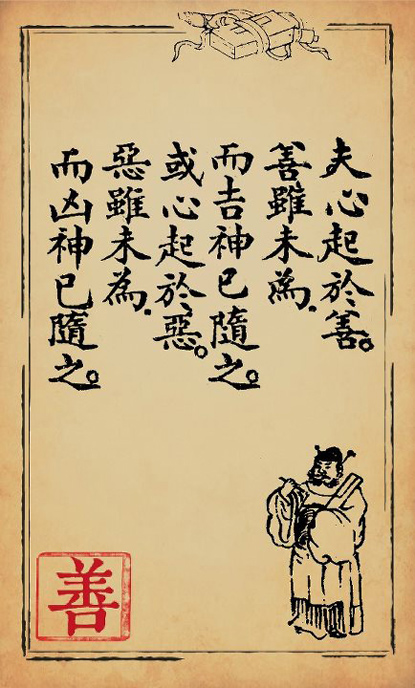 夫心起於善。
善雖未為.
而吉神已隨之。
或心起於惡。
惡雖未為.
而凶神已隨之。
善